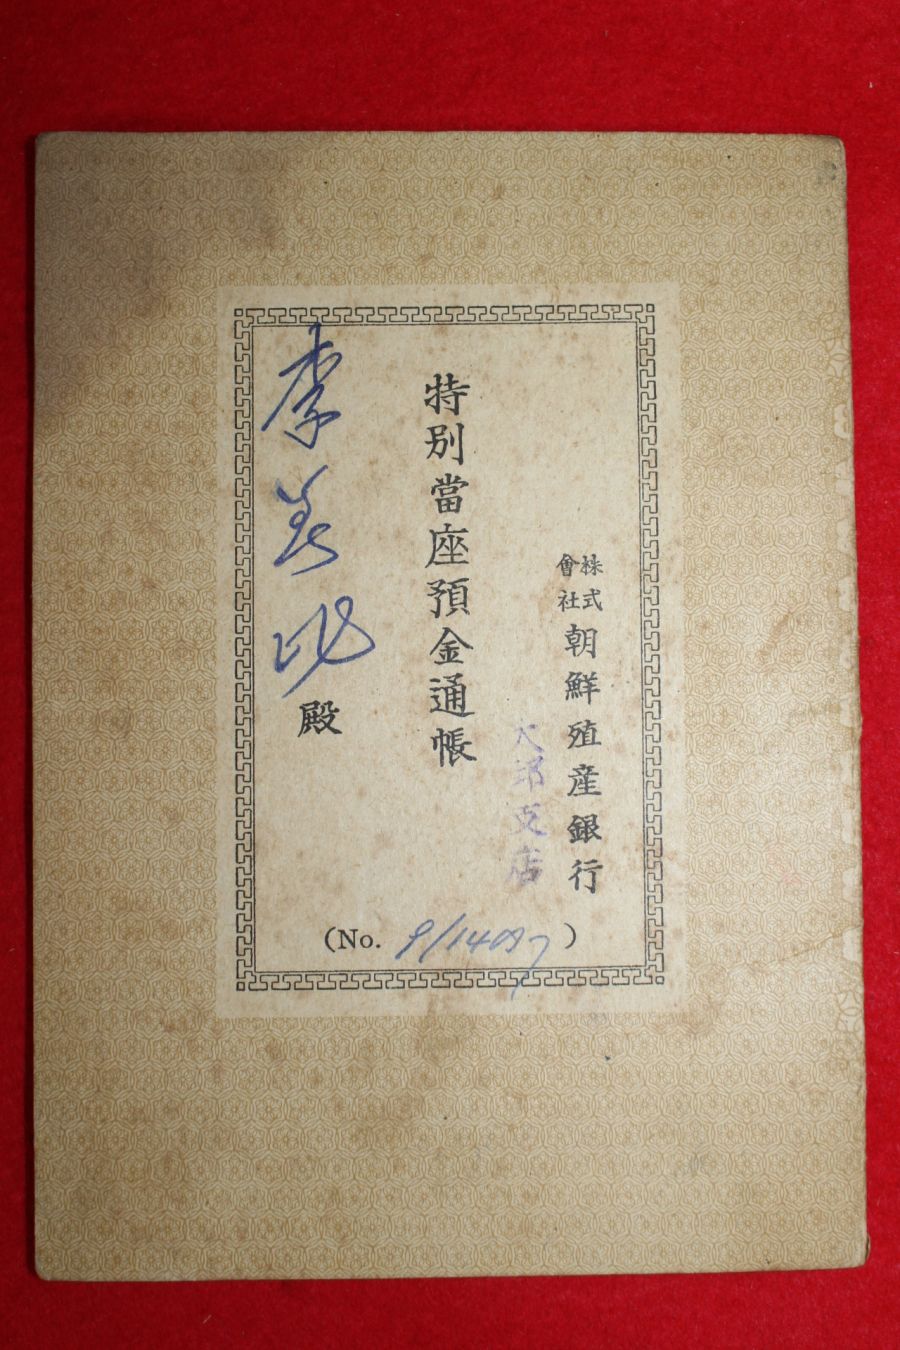 株式會社朝鮮殖産銀行
大邱支店
特別當座預金通帳
李 殿
(No. 9/1409)